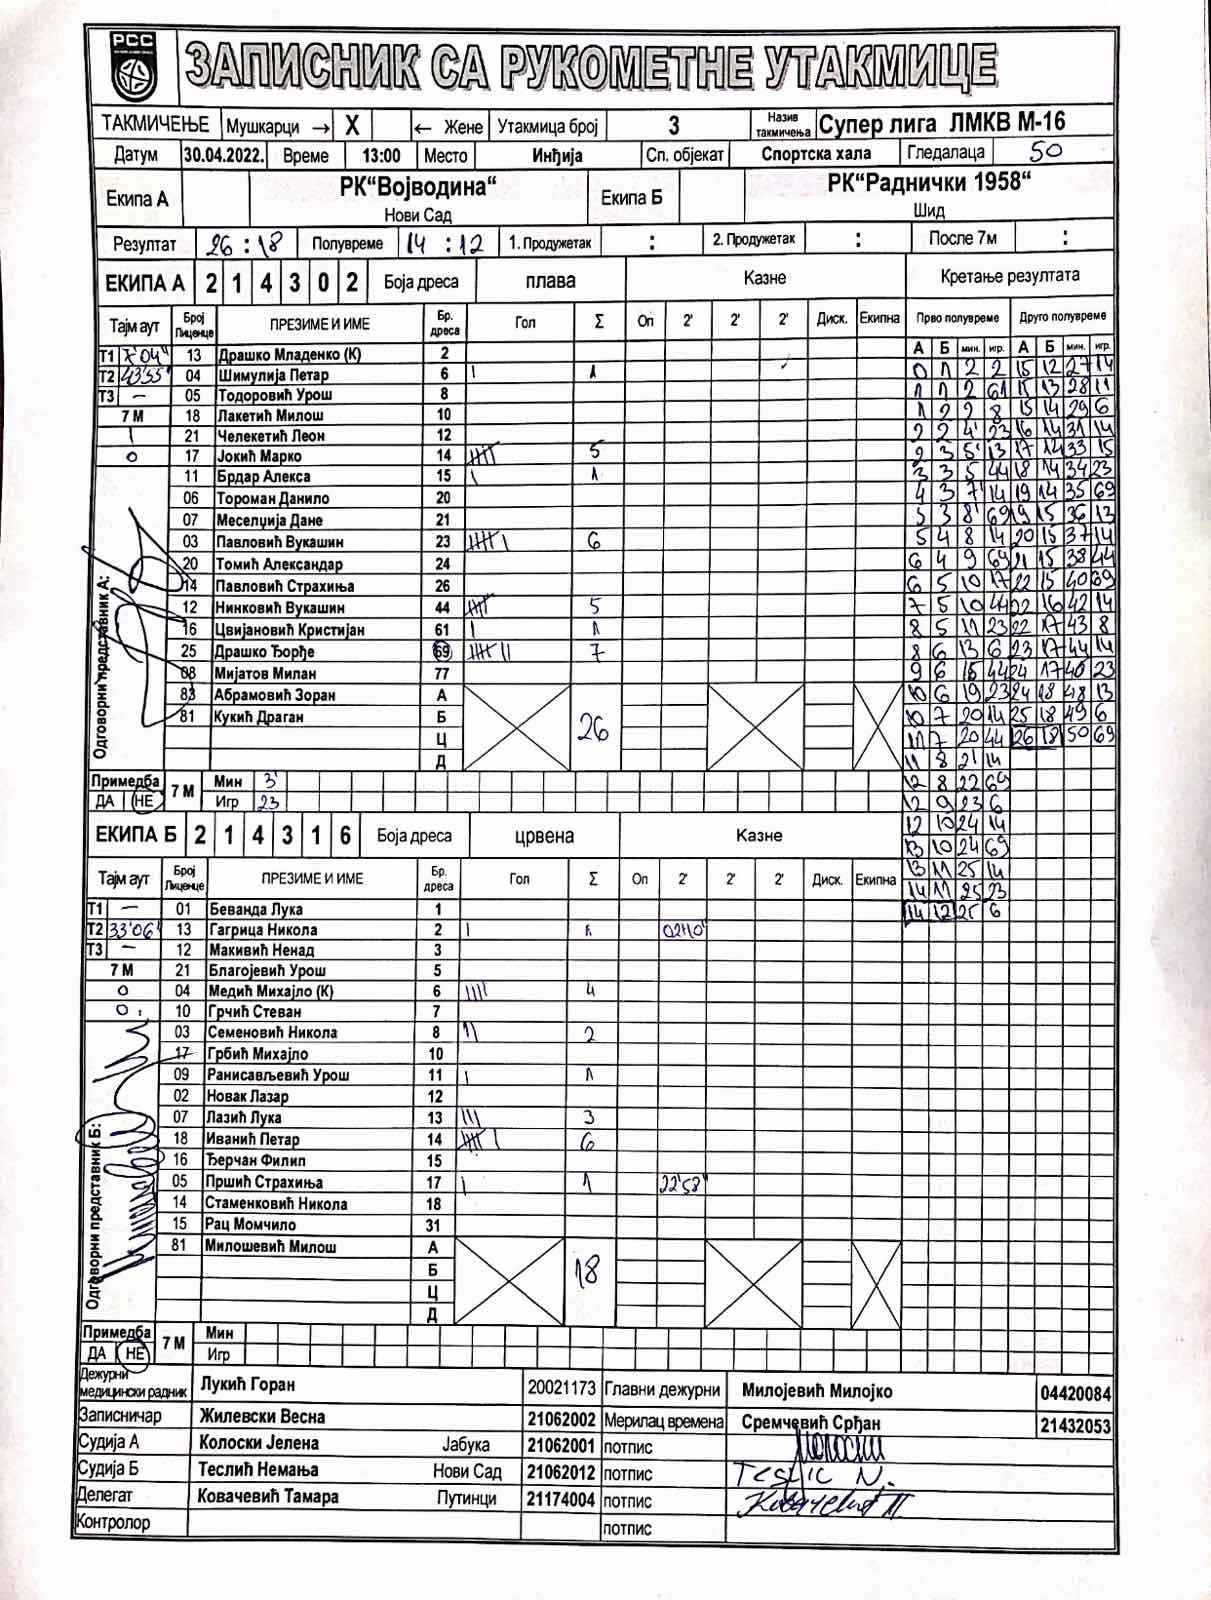 РСС
ЗАПИСНИК СА РУКОМЕТНЕ УТАКМИЦЕ
ТАКМИЧЕЊЕ Мушкарци → X ← Жене Утакмица број 3 Назив такмичења Супер лига ЛМКВ М-16
Датум 30.04.2022. Време 13:00 Место Инђија Сп. објекат Спортска хала Гледалаца 50
Екипа А РК“Војводина“ Нови Сад Екипа Б РК“Раднички 1958“ Шид
Резултат 26 : 18 Полувреме 14 : 12 1. Продужетак : 2. Продужетак : После 7м :
ЕКИПА А 2 1 4 3 0 2 Боја дреса плава Казне Кретање резултата
Тајм аут Број Лиценце ПРЕЗИМЕ И ИМЕ Бр. дреса Гол Σ Оп 2' 2' 2' Диск. Екипна Прво полувреме Друго полувреме
А Б мин. игр. А Б мин. игр.
Т1 7'04" 13 Драшко Младенко (К) 2 0 1 2 2 15 12 27 14
Т2 43'55" 04 Шимулија Петар 6 I 1 1 1 2 61 15 13 28 11
Т3 – 05 Тодоровић Урош 8 1 2 2 8 15 14 29 6
7 М 18 Лакетић Милош 10 2 2 4' 23 16 14 31 14
1 21 Челекетић Леон 12 2 3 5' 13 17 14 33 15
0 17 Јокић Марко 14 5 3 3 5 44 18 14 34 23
11 Брдар Алекса 15 I 1 4 3 7' 14 19 14 35 69
06 Тороман Данило 20 5 3 8' 69 19 15 36 13
07 Меселџија Дане 21 5 4 8 14 20 15 37 14
03 Павловић Вукашин 23 6 6 4 9 69 21 15 38 44
20 Томић Александар 24 6 5 10 17 22 15 40 69
14 Павловић Страхиња 26 7 5 10 44 22 16 42 14
12 Нинковић Вукашин 44 5 8 5 11 23 22 17 43 8
16 Цвијановић Кристијан 61 I 1 8 6 13 6 23 17 44 14
25 Драшко Ђорђе 69 7 9 6 15 44 24 17 46 23
08 Мијатов Милан 77 10 6 19 23 24 18 48 13
83 Абрамовић Зоран А 10 7 20 14 25 18 49 6
81 Кукић Драган Б 26 11 7 20 44 26 18 50 69
Ц 11 8 21 14
Д 12 8 22 69
Одговорни представник А:
Примедба ДА НЕ 7 М Мин 3' 12 9 23 6
Игр 23 12 10 24 14
13 10 24 69
ЕКИПА Б 2 1 4 3 1 6 Боја дреса црвена Казне
13 11 25 14
Тајм аут Број Лиценце ПРЕЗИМЕ И ИМЕ Бр. дреса Гол Σ Оп 2' 2' 2' Диск. Екипна 14 11 25 23
Т1 – 01 Беванда Лука 1 14 12 25 6
Т2 33'06" 13 Гагрица Никола 2 I 1 02'10"
Т3 – 12 Макивић Ненад 3
7 М 21 Благојевић Урош 5
0 04 Медић Михајло (К) 6 IIII 4
0 10 Грчић Стеван 7
03 Семеновић Никола 8 II 2
17 Грбић Михајло 10
09 Ранисављевић Урош 11 I 1
02 Новак Лазар 12
07 Лазић Лука 13 III 3
18 Иванић Петар 14 6
16 Ђерчан Филип 15
05 Пршић Страхиња 17 I 1 22'58"
14 Стаменковић Никола 18
15 Рац Момчило 31
81 Милошевић Милош А
Б 18
Ц
Д
Одговорни представник Б:
Примедба ДА НЕ 7 М Мин
Игр
Дежурни медицински радник Лукић Горан 20021173 Главни дежурни Милојевић Милојко 04420084
Записничар Жилевски Весна 21062002 Мерилац времена Сремчевић Срђан 21432053
Судија А Колоски Јелена Јабука 21062001 потпис
Судија Б Теслић Немања Нови Сад 21062012 потпис Teslic N.
Делегат Ковачевић Тамара Путинци 21174004 потпис Ковачевић Т
Контролор потпис